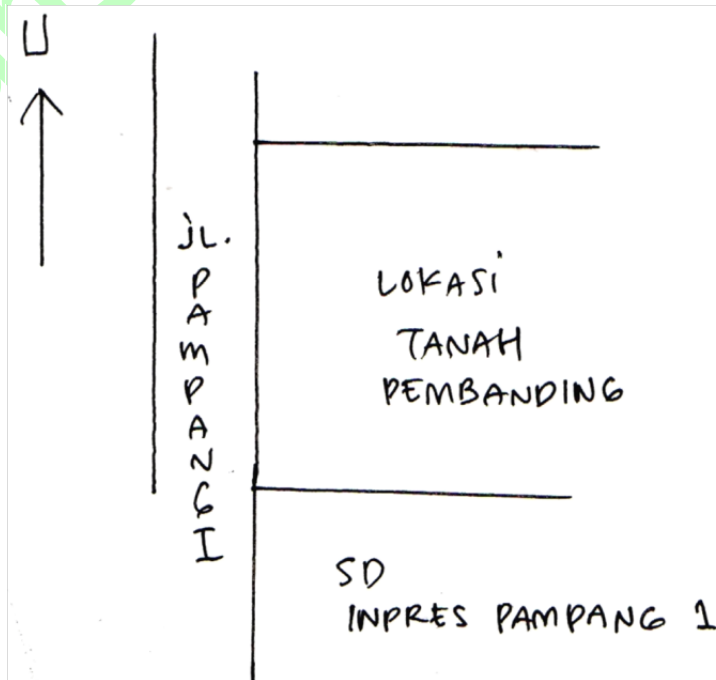 U
JL. PAMPANG I
LOKASI
TANAH
PEMBANDING
SD
INPRES PAMPANG 1